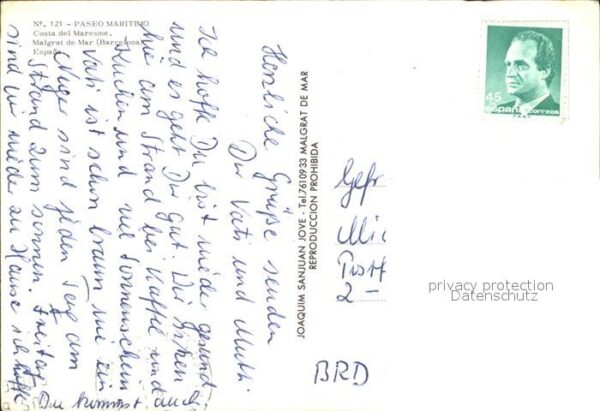 Nº. 121 – PASEO MARITIMO
Costa del Maresme,
Malgrat de Mar (Barcelona)
España
Herzliche Grüße senden
Dir Vati und Mutti.
Ich hoffe Du bist wieder gesund
und es geht Dir gut. Wir sitzen
hie am Strand bei Kaffee und
Kuchen und viel Sonnenschein
Vati ist schon braun wie ein
Neger sind jeden Tag am
Strand zum sonnen. Freitag
sind wir wieder zu Hause ich hoffe
Du kommst auch.
JOAQUIM SANJUAN JOVE - Tel.7610933 MALGRAT DE MAR
REPRODUCCION PROHIBIDA
45
España correos
Gefr
Mic
Postf
2 –
BRD
privacy protection
Datenschutz